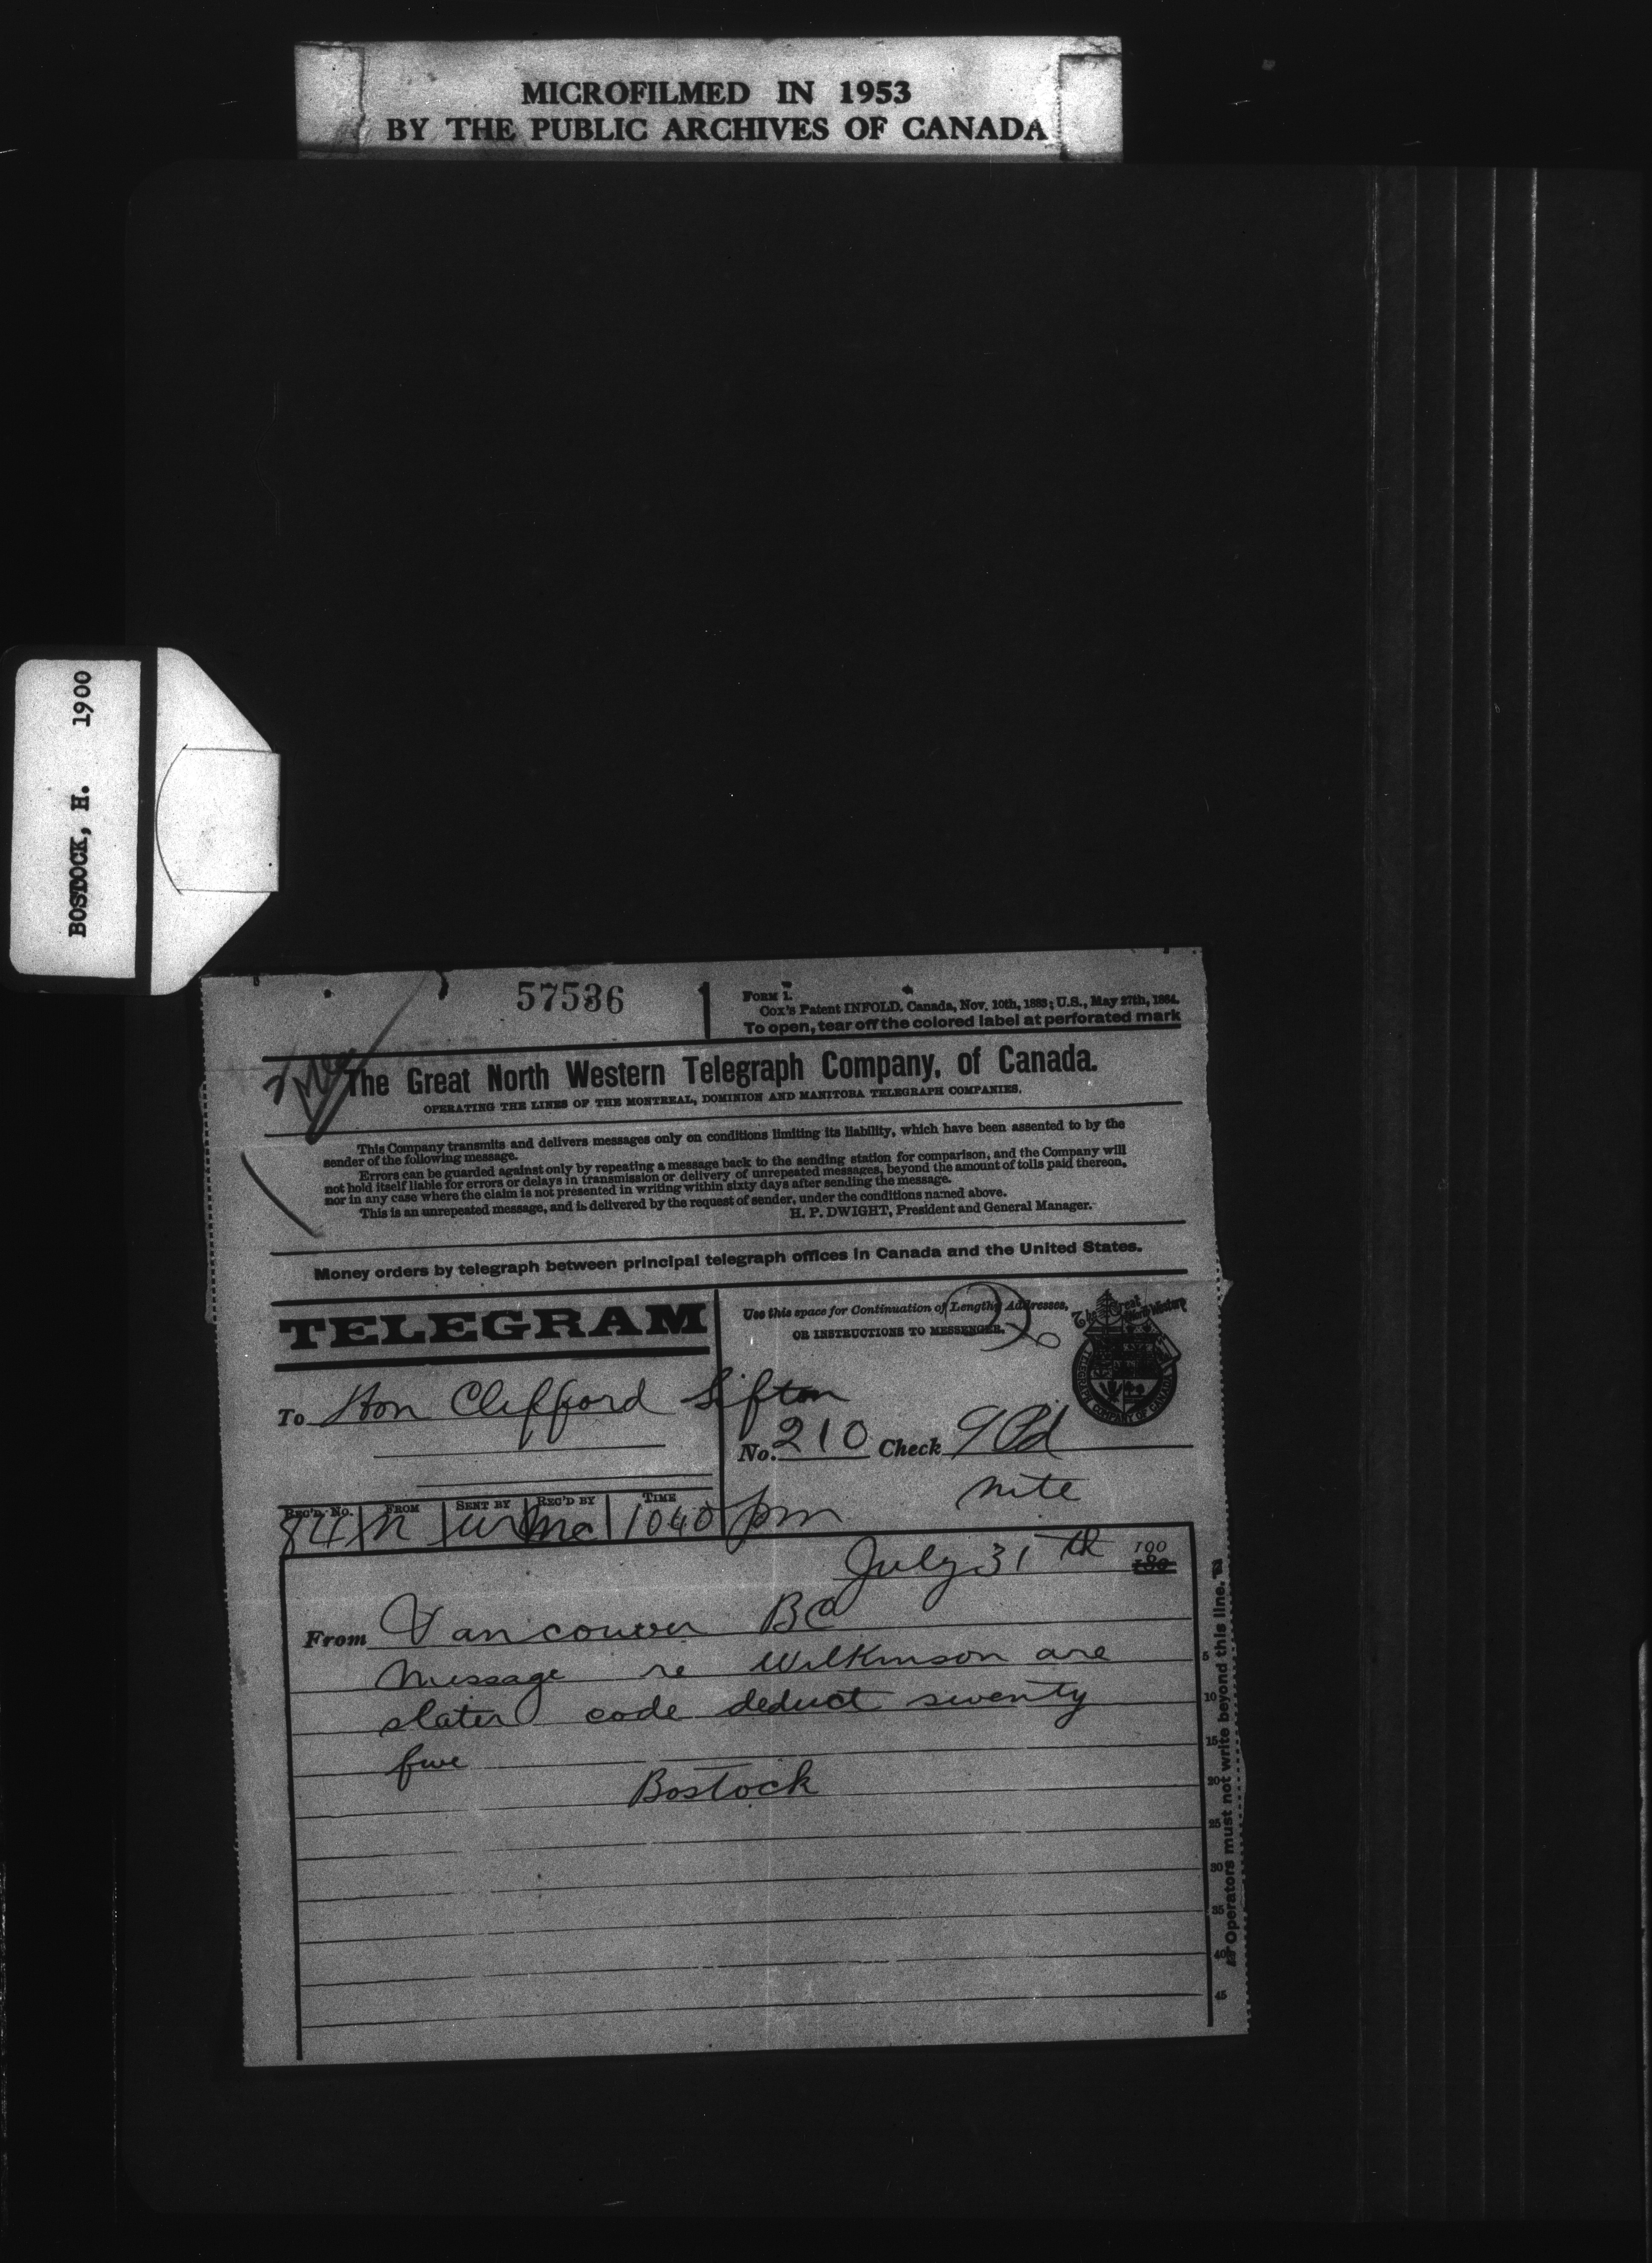 MICROFILMED IN 1953
BY THE PUBLIC ARCHIVES OF CANADA
BOSTOCK, H. 1900
57536
FORM 1.
Cox's Patent INFOLD. Canada, Nov. 10th, 1883; U.S., May 27th, 1884.
To open, tear off the colored label at perforated mark
The Great North Western Telegraph Company, of Canada.
OPERATING THE LINES OF THE MONTREAL, DOMINION AND MANITOBA TELEGRAPH COMPANIES.
This Company transmits and delivers messages only on conditions limiting its liability, which have been assented to by the
sender of the following message.
Errors can be guarded against only by repeating a message back to the sending station for comparison, and the Company will
not hold itself liable for errors or delays in transmission or delivery of unrepeated messages, beyond the amount of tolls paid thereon,
nor in any case where the claim is not presented in writing within sixty days after sending the message.
This is an unrepeated message, and is delivered by the request of sender, under the conditions named above.
H. P. DWIGHT, President and General Manager.
Money orders by telegraph between principal telegraph offices in Canada and the United States.
TELEGRAM
Use this space for Continuation of Lengthy Addresses,
OR INSTRUCTIONS TO MESSENGER.
The Great North Western
TELEGRAPH COMPANY OF CANADA
To Hon Clifford Sifton
No. 210 Check 9 Pd
nite
REC'D. No. FROM SENT BY REC'D BY TIME
84 n mc 1040 pm
July 31 th 190
From Vancouver BC
Message re Wilkinson are
slater code deduct seventy
five
Bostock
5
10
15
20
25
30
35
40
45
Operators must not write beyond this line.